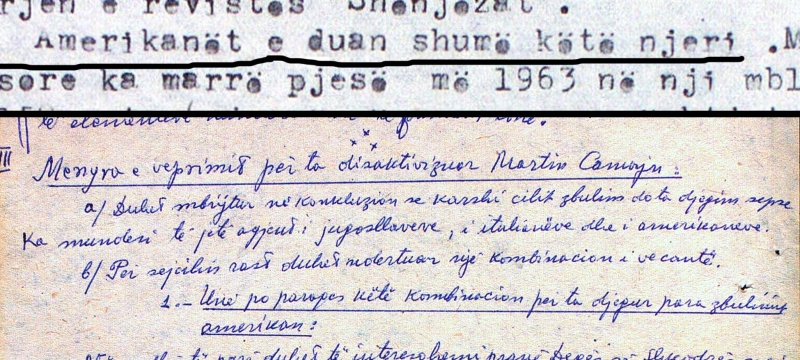 rjen e revistes "Shenjezat".
Amerikanët e duan shumë këtë njeri .M
sore ka marrë pjesë më 1963 në nji mbl
të elementëve
III Menyra e veprimit për ta dizaktivizuar Martin Camajn:
a/ Duhet mbrijtur në konkluzion se karshi cilit zbulim do ta djegim sepse
Ka mundesi të jetë agjent i jugosllaveve, i italianëve dhe i amerikaneve.
b/ Për sejcilin rast duhet ndertuar një kombinacion i vecantë.
1.- Unë po paraqes këtë kombinacion për ta djegur para zbulimit
amerikan:
parë duhet të interesohemi pranë Degës së Shkodrës